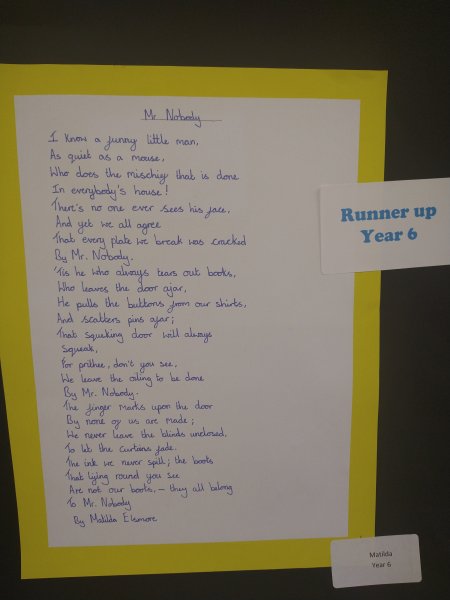 Mr Nobody
I know a funny little man,
As quiet as a mouse,
Who does the mischief that is done
In everybody's house!
There's no one ever sees his face,
And yet we all agree
That every plate we break was cracked
By Mr. Nobody.
'Tis he who always tears out books,
Who leaves the door ajar,
He pulls the buttons from our shirts,
And scatters pins afar;
That squeking door will always
Squeak,
For prithee, don't you see,
We leave the oiling to be done
By Mr. Nobody.
The finger marks upon the door
By none of us are made;
We never leave the blinds unclosed,
To let the curtains fade.
The ink we never spill; the boots
That lying round you see
Are not our boots, – they all belong
To Mr. Nobody
By Matilda
Runner up
Year 6
Matilda
Year 6